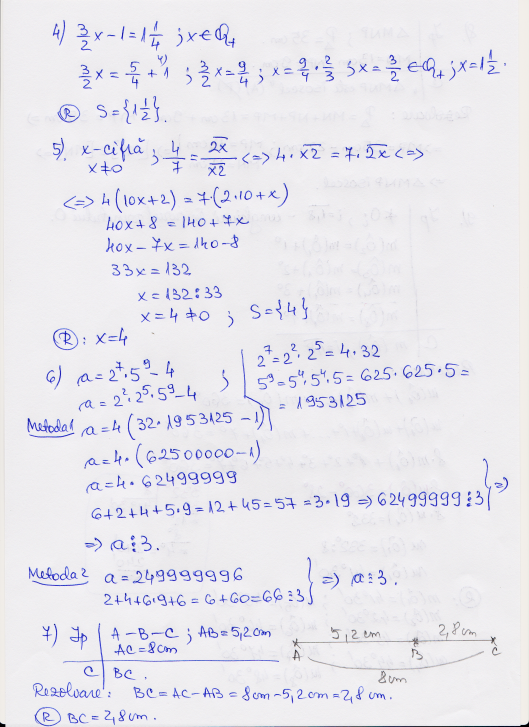 4) 3/2 x - 1 = 1 1/4 ; x ∈ Q+
3/2 x = 5/4 + 4) 1 ; 3/2 x = 9/4 ; x = 9/4 · 2/3 ; x = 3/2 ∈ Q+ ; x = 1 1/2.
Ⓡ S = {1 1/2}.
5) x - cifră ; 4/7 = 2x̅/x̅2̅ <=> 4 · x̅2̅ = 7 · 2̅x̅ <=>
x ≠ 0
<=> 4(10x+2) = 7·(2·10+x)
40x + 8 = 140 + 7x
40x - 7x = 140 - 8
33x = 132
x = 132 : 33
x = 4 ≠ 0 ; S = {4}
Ⓡ : x = 4
6) a = 2⁷·5⁹ - 4 ; 2⁷ = 2²·2⁵ = 4·32
a = 2²·2⁵·5⁹ - 4 5⁹ = 5⁴·5⁴·5 = 625·625·5 =
= 1953125
Metoda 1 a = 4(32·1953125 - 1)
a = 4·(62500000 - 1)
a = 4·62499999
6+2+4+5·9 = 12+45 = 57 = 3·19 => 62499999 ⋮ 3 } =>
=> a ⋮ 3.
Metoda 2 a = 249999996
2+4+6·9+6 = 6+60 = 66 ⋮ 3 } => a ⋮ 3.
7) Jp A - B - C ; AB = 5,2cm
AC = 8cm
C BC.
5,2cm 2,8cm
A B C
8cm
Rezolvare: BC = AC - AB = 8cm - 5,2cm = 2,8cm.
Ⓡ BC = 2,8cm.